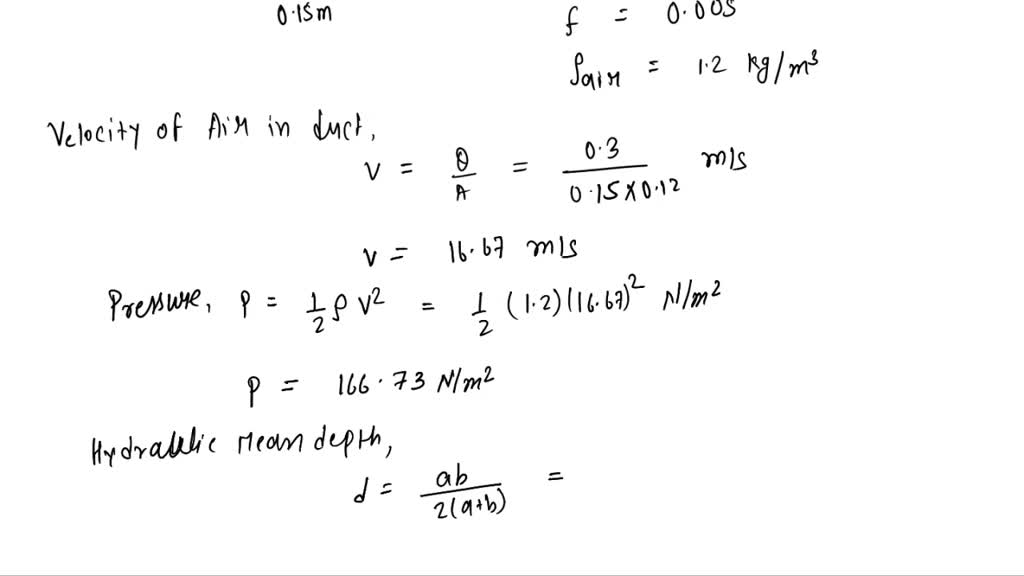 0.15m
f = 0.005
ρair = 1.2 kg/m³
Velocity of Air in duct,
V = Q/A = 0.3/0.15×0.12 m/s
V = 16.67 m/s
Pressure, P = 1/2 ρ V² = 1/2 (1.2)(16.67)² N/m²
P = 166.73 N/m²
Hydraulic Mean depth,
d = ab/2(a+b) =